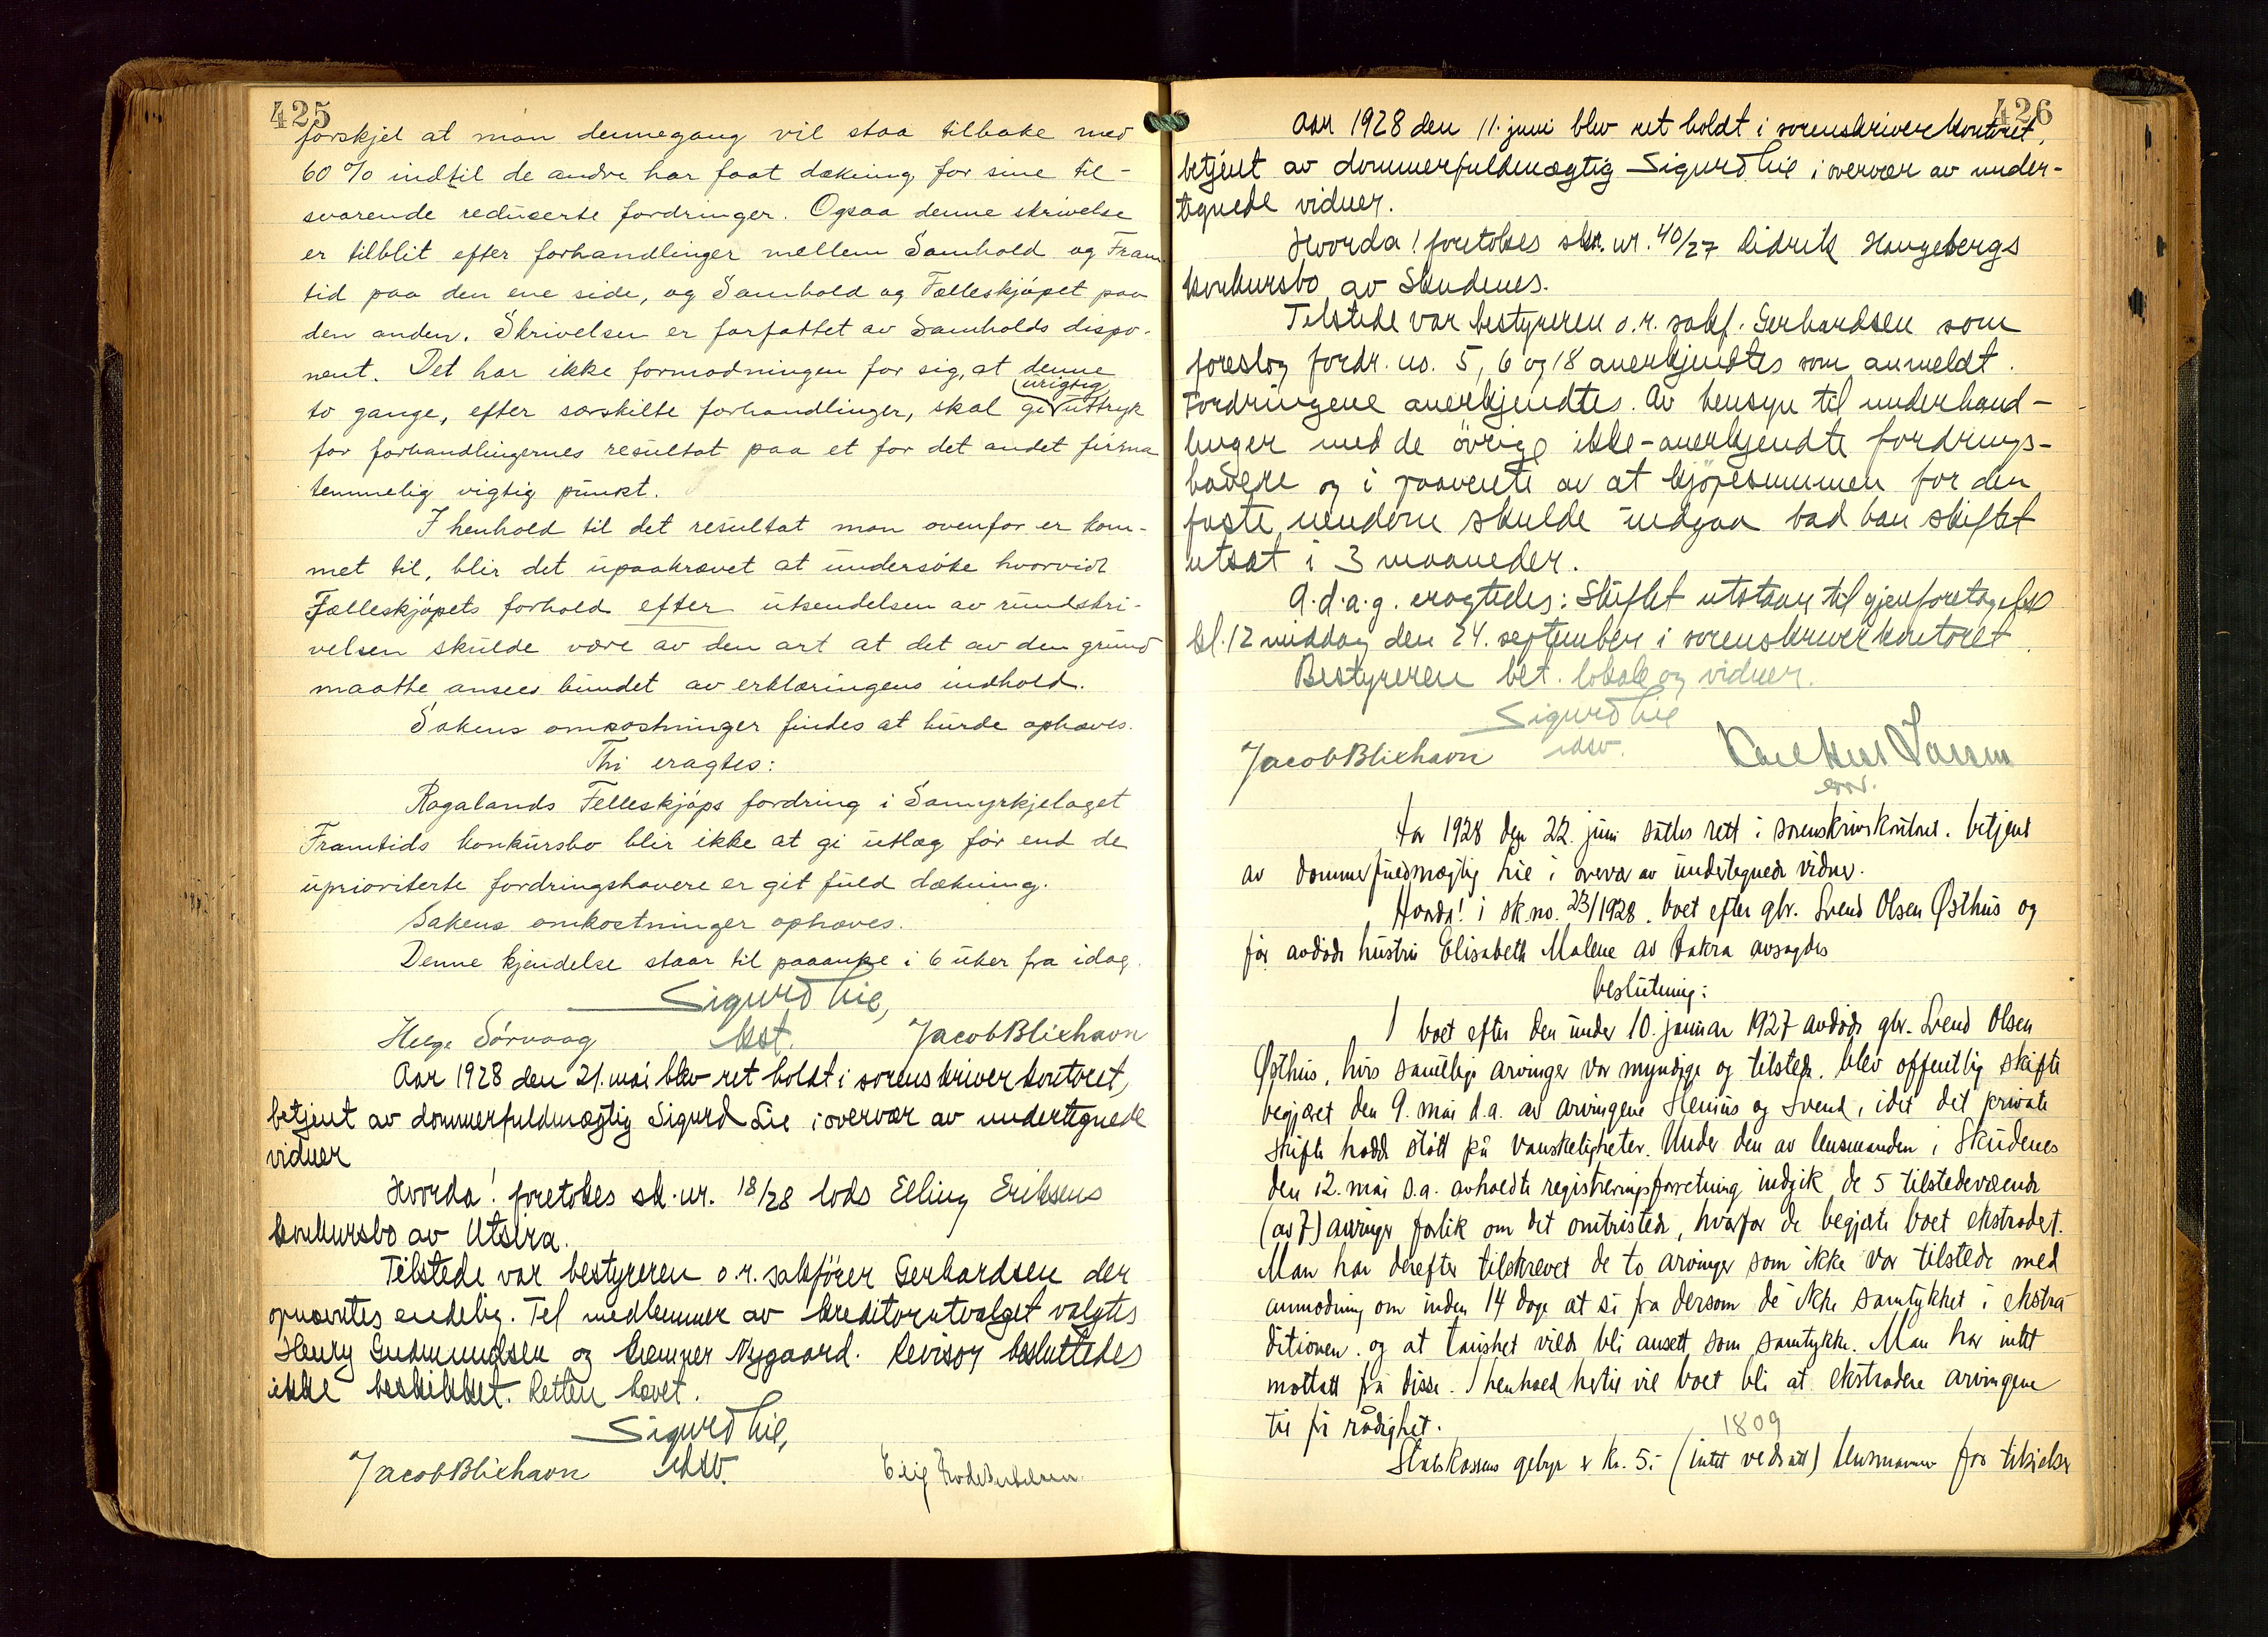 425
forskjel at man dennegang vil staa tilbake med
60 % indtil de andre har faat dækning for sine til-
svarende reduserte fordringer. Ogsaa denne skrivelse
er tilblit efter forhandlinger mellem Samhold og Fram
tid paa den ene side, og Samhold og Fælleskjøpet paa
den anden. Skrivelsen er forfattet av Samholds dispo-
nent. Det har ikke formodningen for sig, at denne
urigtig
to gange, efter særskilte forhandlinger, skal gi uttryk
for forhandlingernes resultat paa et for det andet firma
temmelig vigtig punkt.
I henhold til det resultat man ovenfor er kom-
met til, blir det upaakrævet at undersøke hvorvidt
Fælleskjøpets forhold efter utsendelsen av rundskri-
velsen skulde være av den art at det av den grund
maatte ansees bundet av erklæringens indhold.
Sakens omkostninger findes at burde ophæves.
Thi eragtes:
Rogalands Felleskjøps fordring i Samyrkjelaget
Framtids konkursbo blir ikke at gi utlæg før end de
uprioriterte fordringshavere er git fuld dækning.
Sakens omkostninger ophæves.
Denne kjendelse staar til paaanke i 6 uker fra idag.
Sigurd Lie,
Helge Sörvaag kst. Jacob Blixhavn
Aar 1928 den 21. mai blev ret holdt i sorenskriverkontoret,
betjent av dommerfuldmægtig Sigurd Lie i overvær av undertegnede
vidner
Hvorda! foretokes sk. nr. 18/28 lods Elling Eriksens
konkursbo av Utsira.
Tilstede var bestyreren o.r. sakfører Gerhardsen der
opnævntes endelig. Til medlemmer av kreditorutvalget valgtes
Henry Gudmundsen og kæmner Nygaard. Revisor besluttedes
ikke beskikket. Retten hævet.
Sigurd Lie,
Jacob Blixhavn edsv.
426
Aar 1928 den 11. juni blev ret holdt i sorenskriverkontoret,
betjent av dommerfuldmægtig Sigurd Lie i overvær av under-
tegnede vidner.
Hvorda! foretokes skr. nr. 40/27 Didrik Haugebergs
konkursbo av Skudenes.
Tilstede var bestyreren o.r. sakf. Gerhardsen som
foreslog fordr. no. 5, 6 og 18 anerkjendtes som anmeldt.
Fordringene anerkjendtes. Av hensyn til underhand-
linger med de övrige ikke-anerkjendte fordrings-
havere og i paavente av at kjöpesummen for den
faste eiendom skulde indgaa bad han skiftet
utsat i 3 maaneder.
A.d.a.g. eragtedes: Skiftet utstaar til gjenforetagelse
kl. 12 middag den 24. september i sorenskriverkontoret.
Bestyreren bet. lokale og vidner.
Sigurd Lie
Jacob Blixhavn edsv.
Aar 1928 den 22. juni sattes rett i sorenskriverkontoret. betjent
av dommerfuldmægtig Lie i overvær av undertegnede vidner.
Hvorda! i sk.no. 23/1928. boet efter gbr. Svend Olsen Østhus og
før avdøde hustru Elisabeth Malene av Aakra avsagdes
beslutning:
I boet efter den under 10. januar 1927 avdøde gbr. Svend Olsen
Østhus, hvis samtlige arvinger var myndige og tilstede. blev offentlig skifte
begjæret den 9. mai d.a. av arvingene Stenius og Svend, idet det private
skifte hadde støtt på vanskeligheter. Under den av lensmanden i Skudenes
den 12. mai d.a. avholdte registreringsforretning indgik de 5 tilstedeværende
(av 7) arvinger forlik om det omtvistede, hvorfor de begjærte boet ekstradert.
Man har derefter tilskrevet de to arvinger som ikke var tilstede med
anmodning om inden 14 dage at si fra dersom de ikke samtykket i ekstra-
ditionen. og at taushet vilde bli ansett som samtykke. Man har intet
mottatt fra disse. I henhold hertil vil boet bli at ekstradere arvingene
til fri rådighet.
1809
Statskassens gebyr er kr. 5.- (intet vedsatt) lensmannen for tilsielse